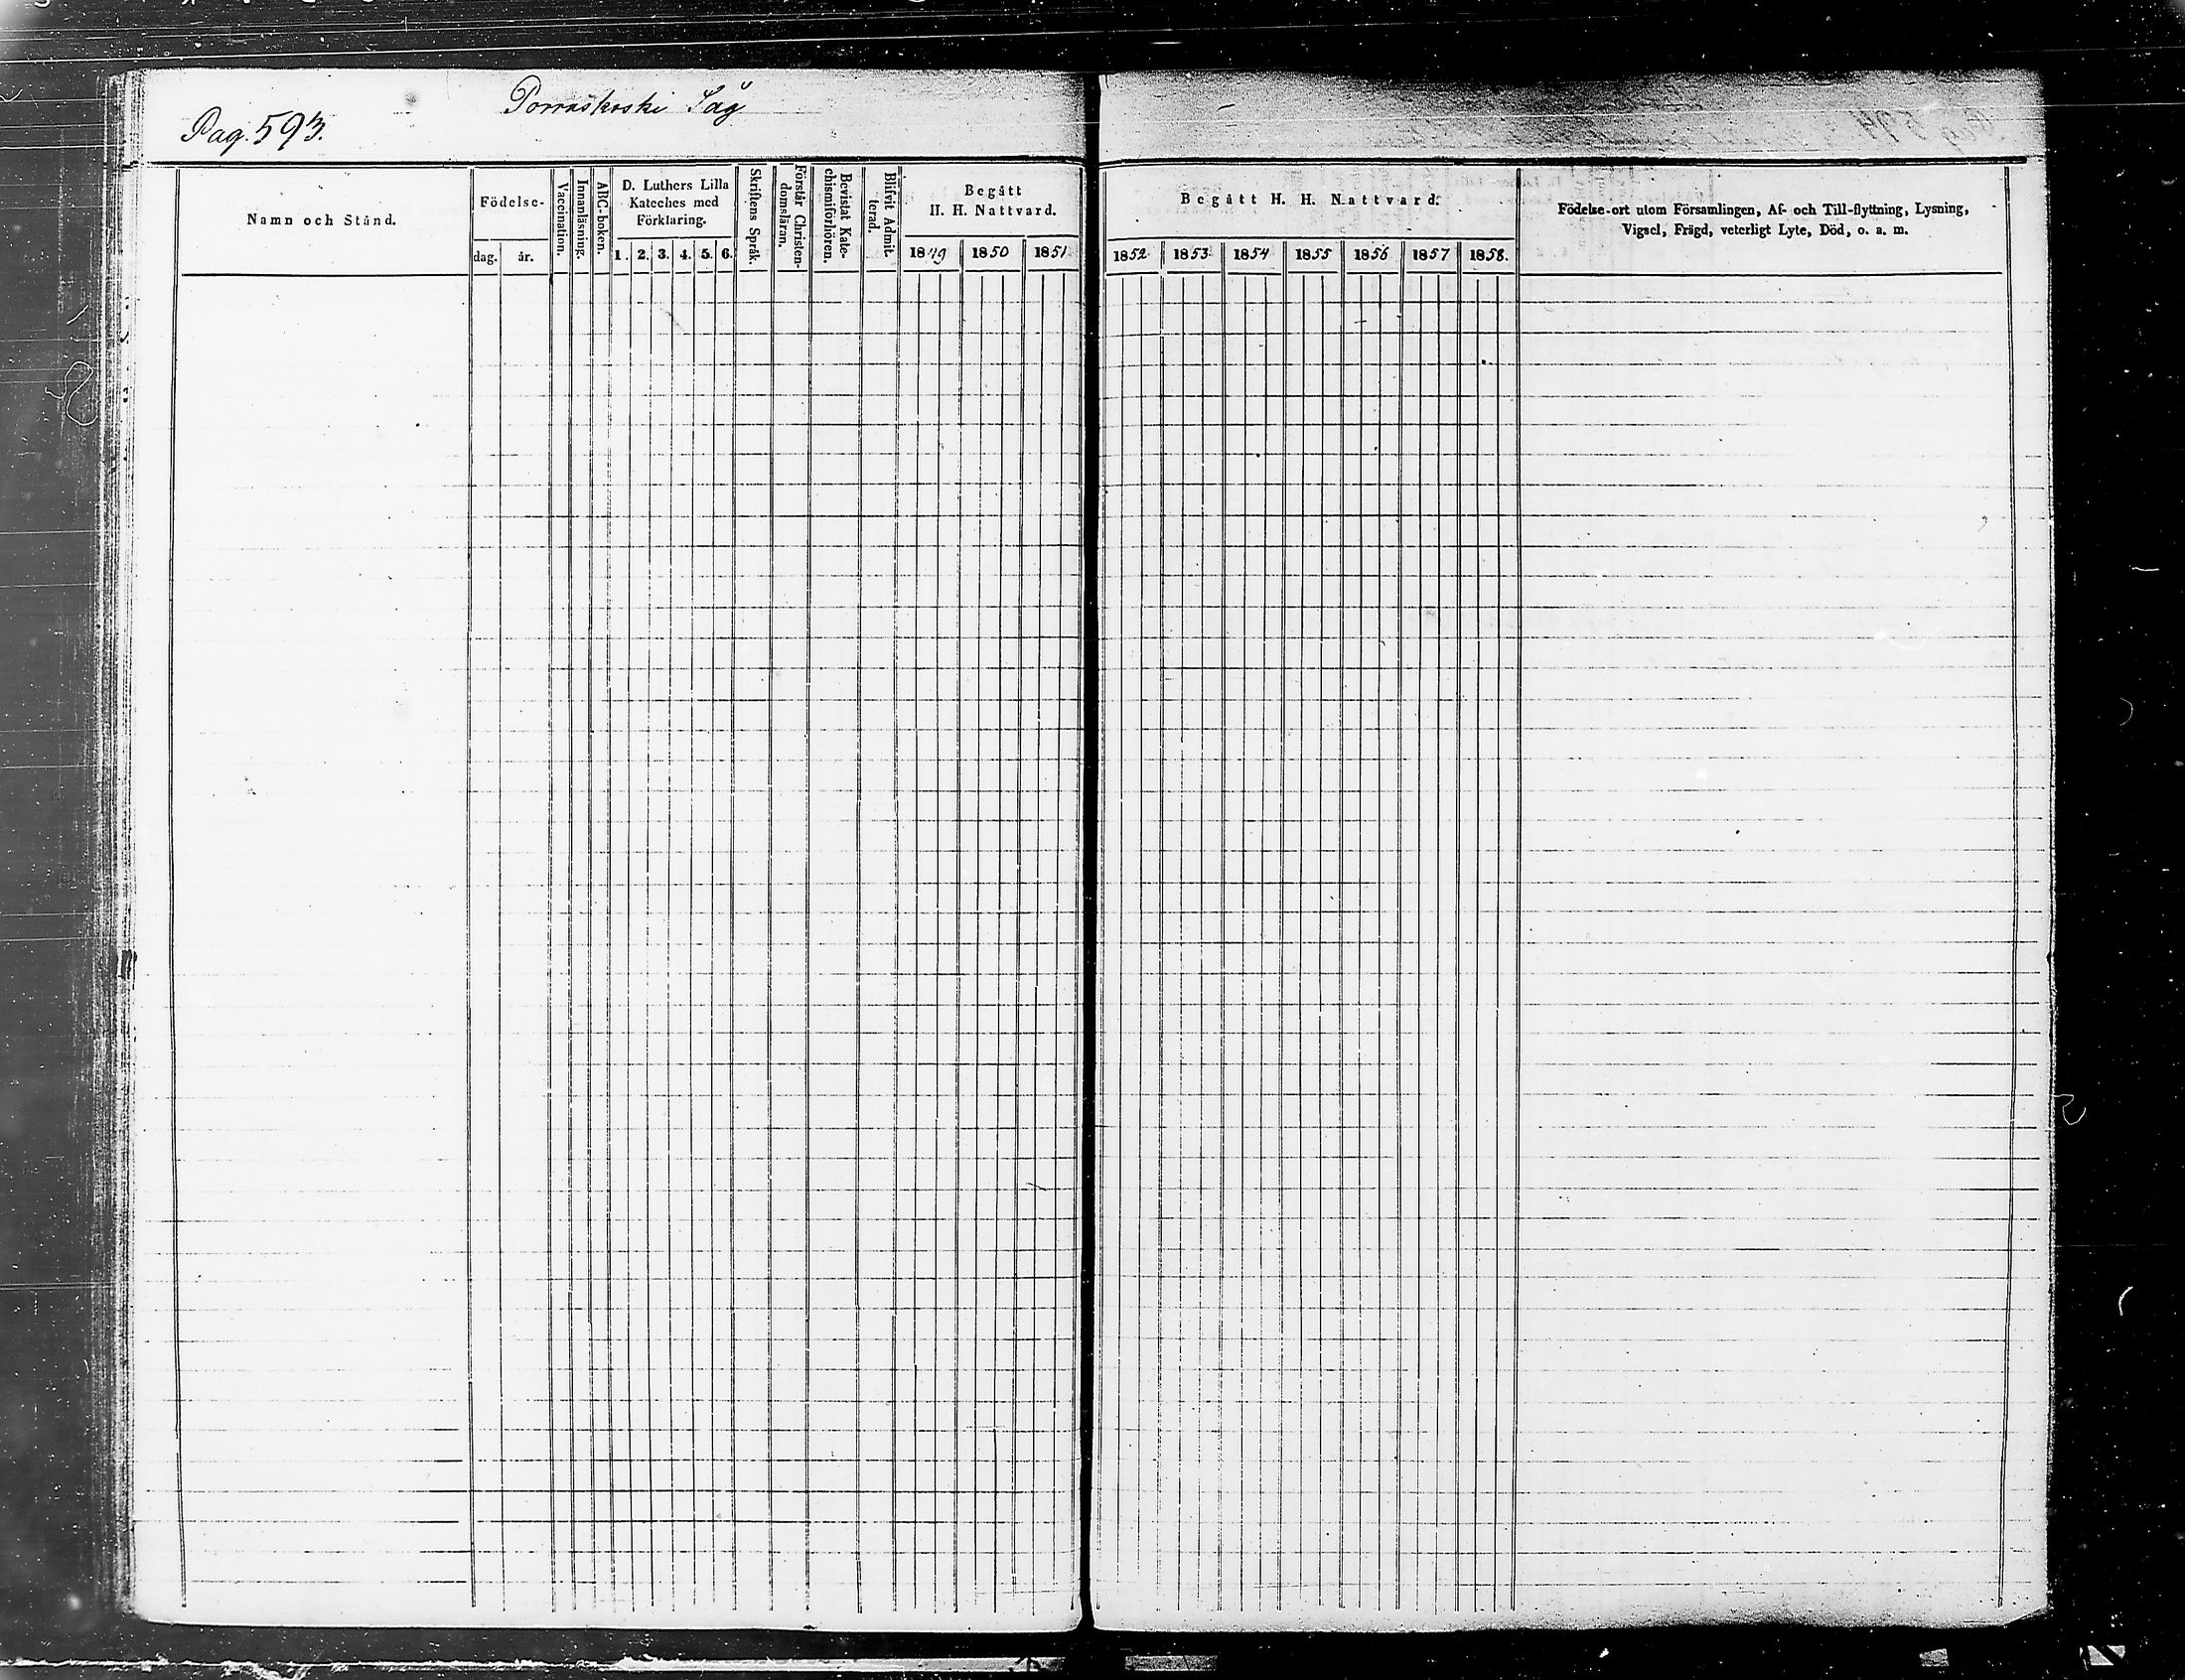 Pag. 593.
Porraskoski Såg
Namn och Stånd.
Födelse-
dag.
år.
Vaccination.
Innanläsning.
ABC-boken.
D. Luthers Lilla
Kateches med
Förklaring.
1. 2. 3. 4. 5. 6.
Skriftens Språk.
Förstår Christen-
domsläran.
Bevistat Kate-
chismiförhören.
Blifvit Admit-
terad.
Begått
H. H. Nattvard.
1849 1850 1851
Begått H. H. Nattvard.
1852 1853 1854 1855 1856 1857 1858.
Födelse-ort utom Församlingen, Af- och Till-flyttning, Lysning,
Vigsel, Frägd, veterligt Lyte, Död, o. a. m.